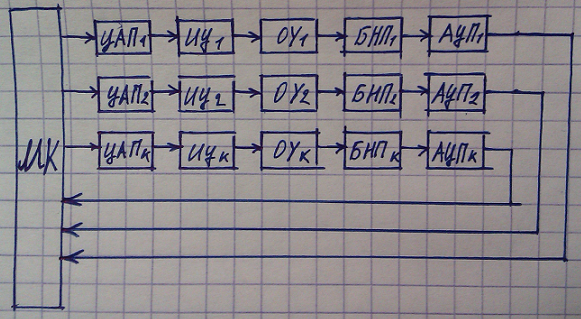 ЦАП1 ИУ1 ОУ1 БНП1 АЦП1
ЦАП2 ИУ2 ОУ2 БНП2 АЦП2
МК ЦАПк ИУк ОУк БНПк АЦПк